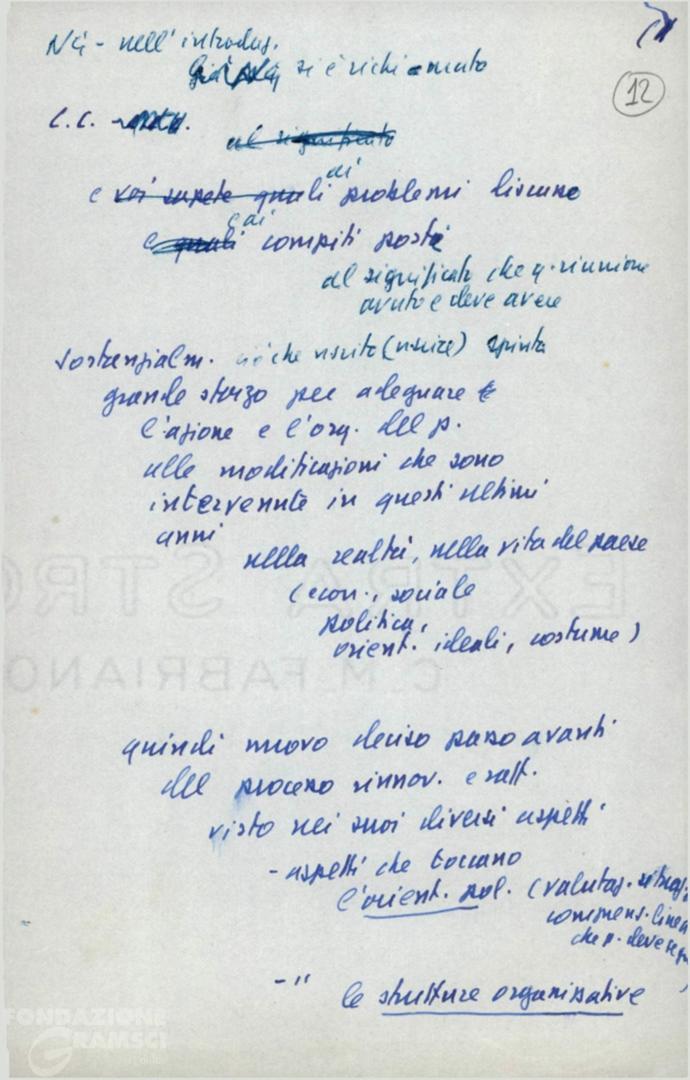 12
Nq - nell'introduz.
già si è richiamato
C.C.
al significato
ai
e voi sapete quali problemi
e ai
e quali compiti posti
al significato che q. riunione
avuto e deve avere
sostanzialm. che uscito (uscire) spinta
grande sforzo per adeguare
l'azione e l'org. del p.
alle modificazioni che sono
intervenute in questi ultimi
anni
nella realtà, nella vita del paese
(econ., sociale
politica,
orient. ideali, costume)
quindi nuovo deciso passo avanti
del processo rinnov. e raff.
visto nei suoi diversi aspetti
- aspetti che toccano
l'orient. pol. (valutaz. situaz.
linea
che p. deve
- " le strutture organizzative
EXTRA STRO
C. M. FABRIANO
FONDAZIONE
GRAMSCI